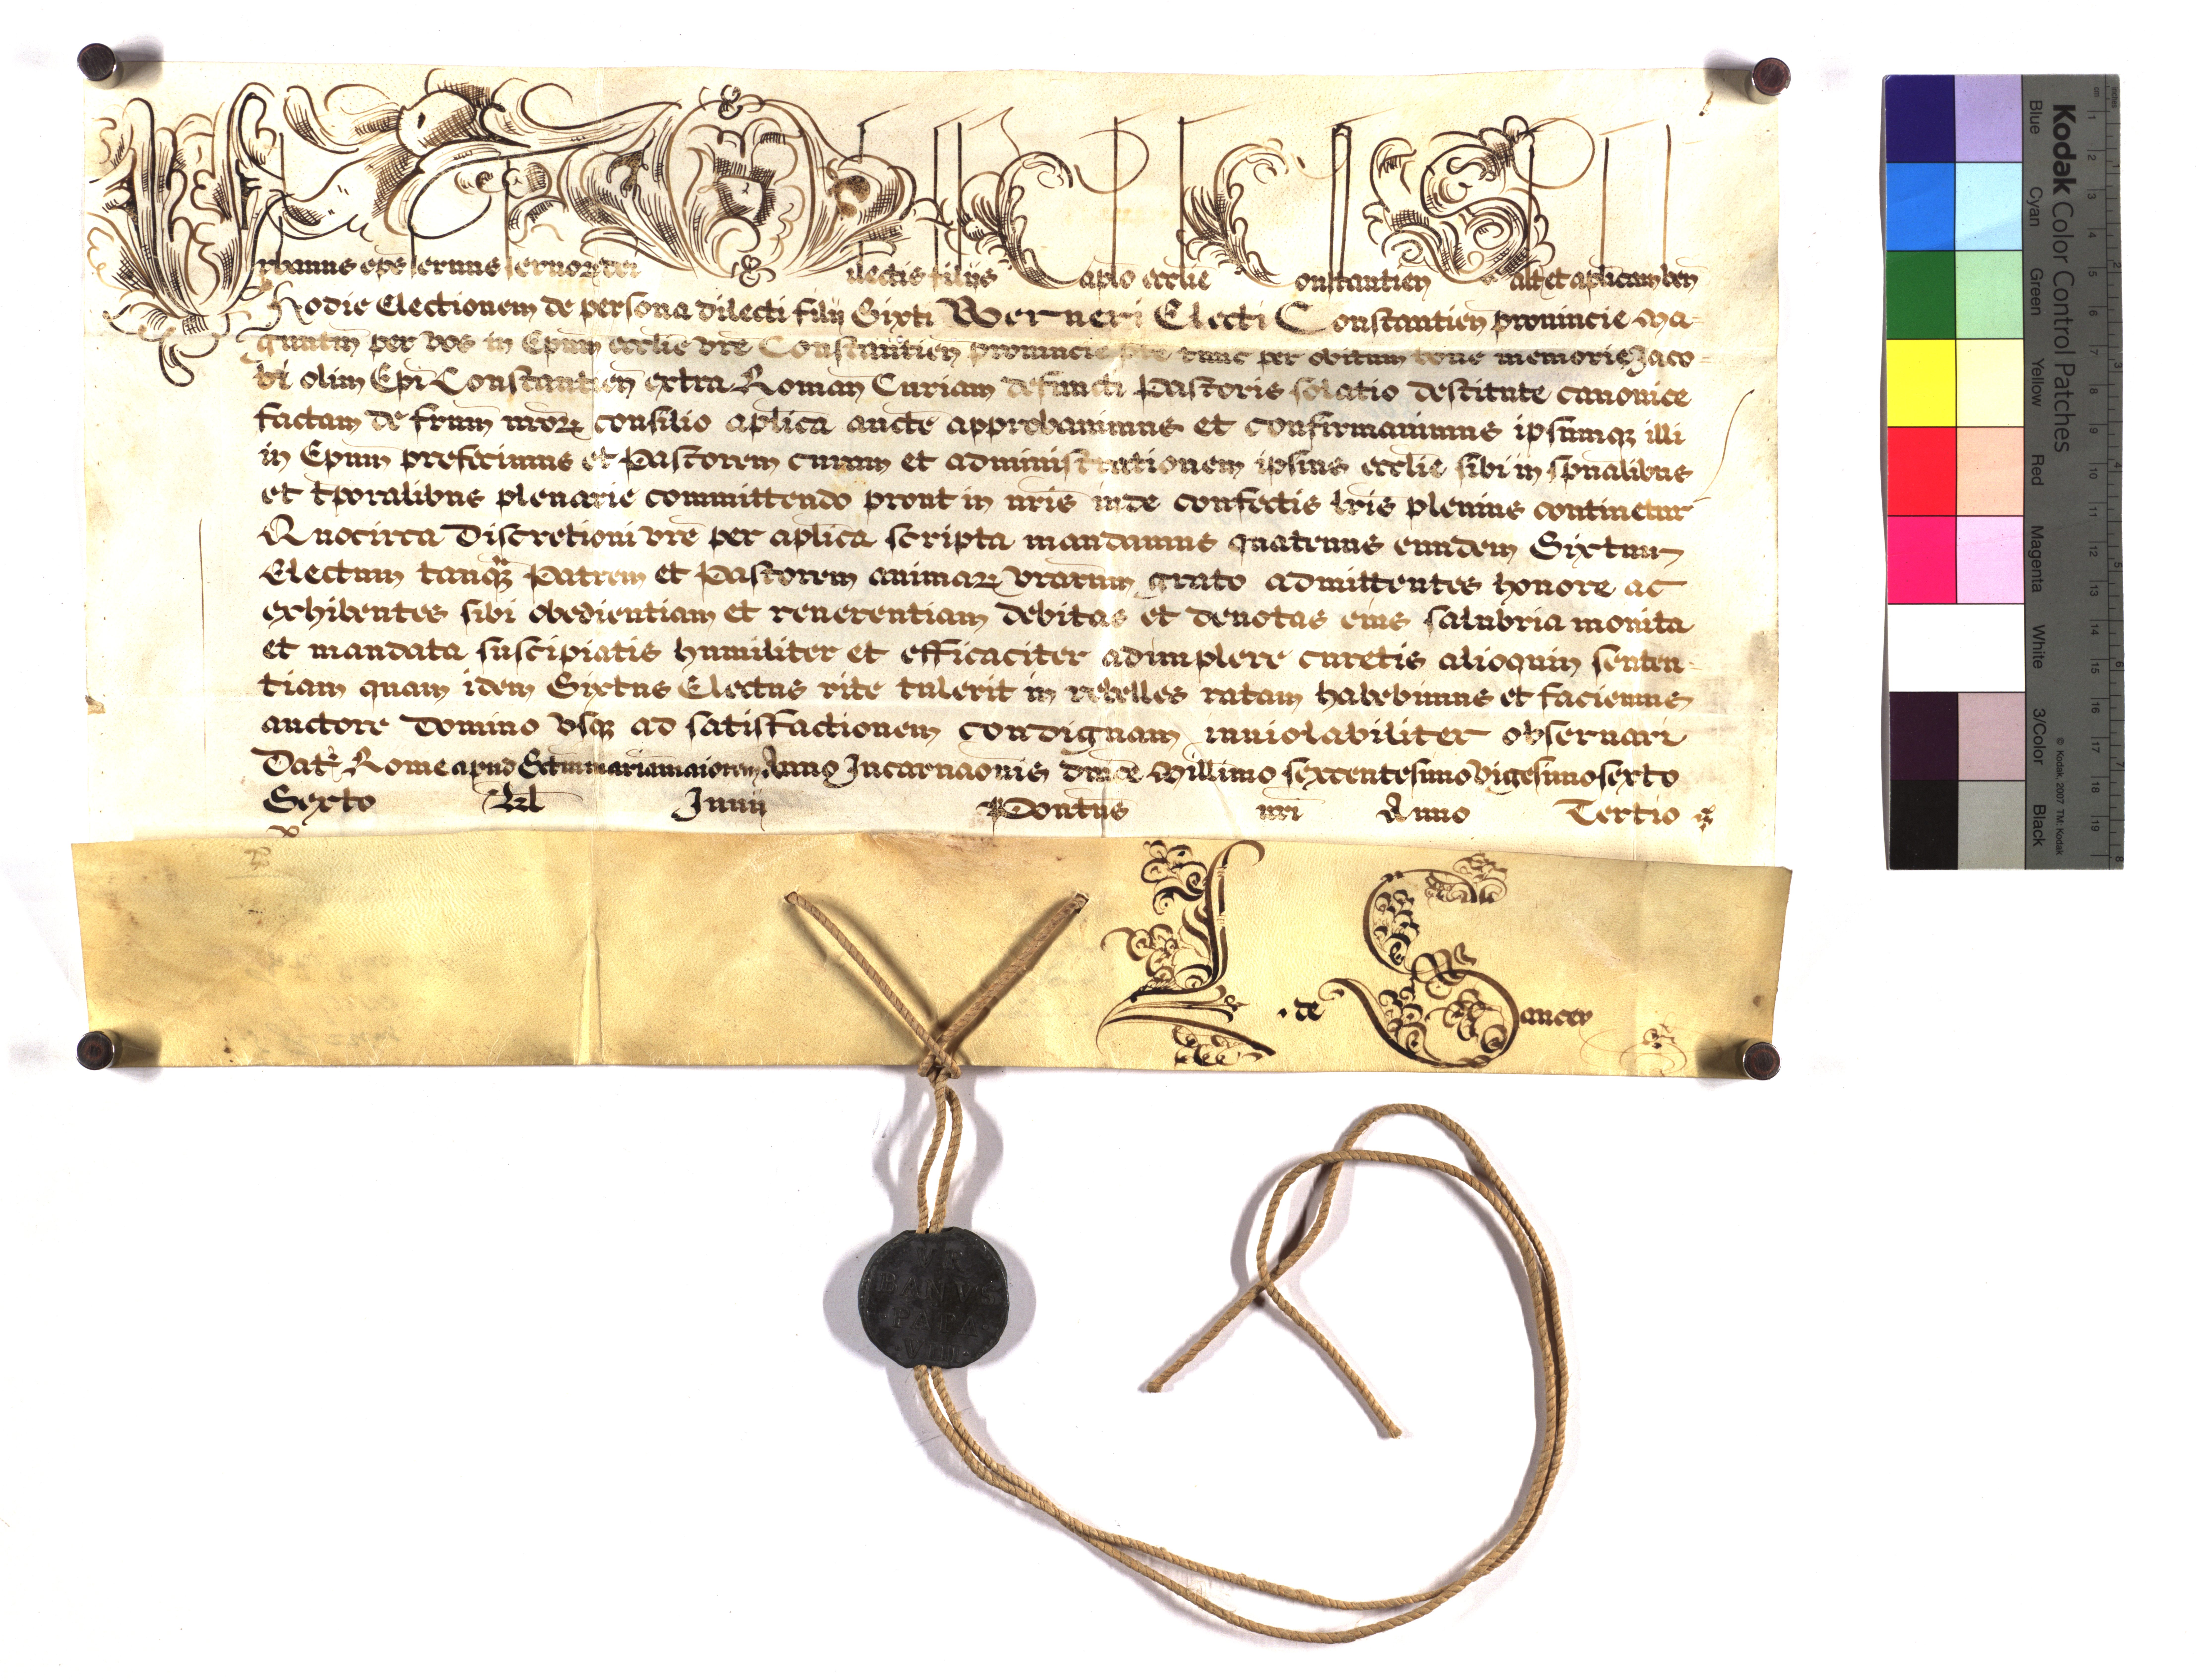 Urbanus eps seruus seruoꝝ dei Dilectis filiis Caplo ecclie Constantien Salt et aplicam ben
Hodie Electionem de persona dilecti filij Sixti Werneri Electi Constantien prouincie Ma-
guntin per vos in Epum ecclie vre Constantien prouincie pte tunc per obitum bone memorie Jaco-
bi olim Epi Constantien extra Roman Curiam defuncti Pastoris solatio destitute canonice
factam de frum nroꝝ consilio aplica aucte approbauimus et confirmauimus ipsumqꝫ illi
in Epum prefecimus et Pastorem curam et administrationem ipsius ecclie sibi in spualibus
et tporalibus plenarie committendo prout in nris inde confectis lris plenius continetur
Quocirca Discretioni vre per aplica scripta mandamus quatenus eundem Sixtum
Electum tanqꝫ Patrem et Pastorem animaꝝ vrarum grato admittentes honore ac
exhibentes sibi obedientiam et reuerentiam debitas et deuotas eius salubria monita
et mandata suscipiatis humiliter et efficaciter adimplere curetis alioquin senten-
tiam quam idem Sixtus Electus rite tulerit in rebelles ratam habebimus et faciemus
auctore Domino vsqꝫ ad satisfactionem condignam inuiolabiliter obseruari
Dat Rome apud Sctam mariam maiorem Anno Incarnaonis dnice Millimo sexcentesimo vigesimosexto
Sexto Kl Junii Pontus nri Anno Tertio
L . de Sancey
VR
BANVS
PAPA
VIII
Kodak Color Control Patches
Blue Cyan Green Yellow Red Magenta White 3/Color Black
© Kodak, 2007 TM: Kodak
cm 1 2 3 4 5 6 7 8 9 10 11 12 13 14 15 16 17 18 19
inches 1 2 3 4 5 6 7 8